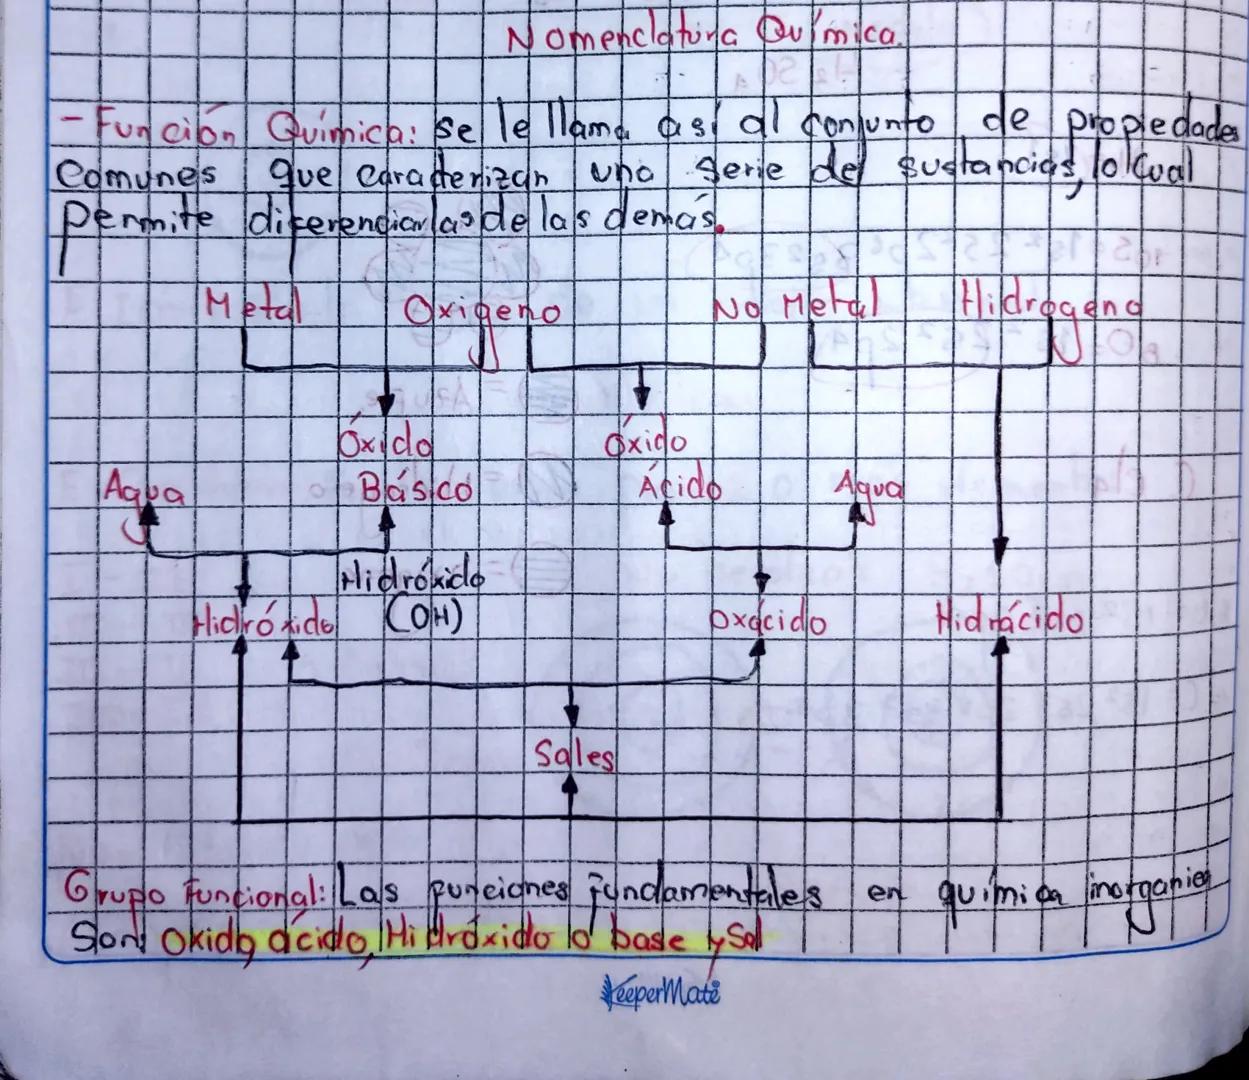 Nomenclatura Química.
- Función Química: se le llama así al conjunto de propiedades
comunes que caracterizan una serie de sustancias, lo cual
permite diferenciarlas de las demás.
Metal Oxígeno No Metal Hidrogeno
Óxido Óxido
Agua Básico Ácido Agua
Hidróxido
Hidróxido (OH) Oxácido Hidrácido
Sales
Grupo Funcional: Las funciones fundamentales en química inorganica
Son: Oxido, ácido, Hidróxido o base y Sal
KeeperMate